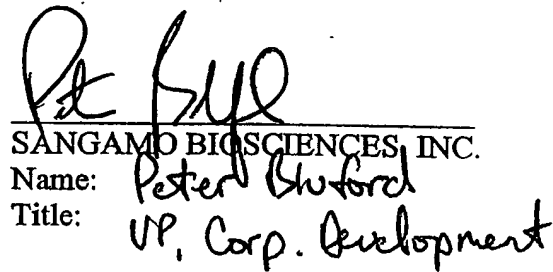 SANGAMO BIOSCIENCES, INC.
Name: Peter Bluford
Title: VP, Corp. Development